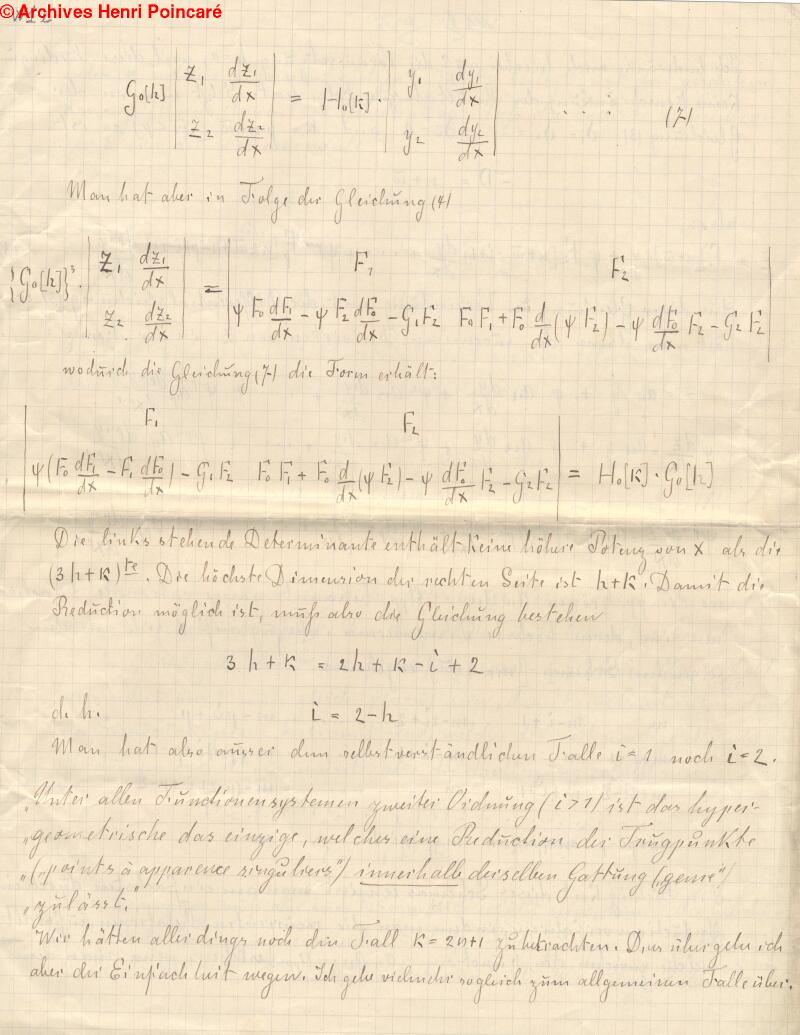 © Archives Henri Poincaré
G₀[h] | z₁ dz₁/dx ; z₂ dz₂/dx | = H₀[k] · | y₁ dy₁/dx ; y₂ dy₂/dx | . . . (7)
Man hat aber in Folge der Gleichung (4)
{G₀[h]}³ · | z₁ dz₁/dx ; z₂ dz₂/dx | = | F₁ F₂ ; ψ F₀ dF₁/dx − ψ F₂ dF₀/dx − G₁F₂ F₀F₁ + F₀ d/dx (ψ F₂) − ψ dF₀/dx F₂ − G₂F₂ |
wodurch die Gleichung (7) die Form erhält:
| F₁ F₂ ; ψ(F₀ dF₁/dx − F₁ dF₀/dx) − G₁F₂ F₀F₁ + F₀ d/dx (ψF₂) − ψ dF₀/dx F₂ − G₂F₂ | = H₀[k] · G₀[h]
Die links stehende Determinante enthält keine höhere Potenz von x als die
(3h+k)te. Die höchste Dimension der rechten Seite ist h+k. Damit die
Reduction möglich ist, muß also die Gleichung bestehen
3h+k = 2h+k−i+2
d. h. i = 2−h
Man hat also ausser dem selbstverständlichen Falle i=1 noch i=2.
„Unter allen Functionensystemen zweiter Ordnung (i>1) ist das hyper-
„geometrische das einzige, welches eine Reduction der Trugpunkte
„(„points à apparence singuliers“) innerhalb derselben Gattung („genre“)
„zulässt.“
Wir hätten allerdings noch den Fall k=2n+1 zu betrachten. Dies übergehe ich
aber der Einfachheit wegen. Ich gehe vielmehr sogleich zum allgemeinen Falle über.